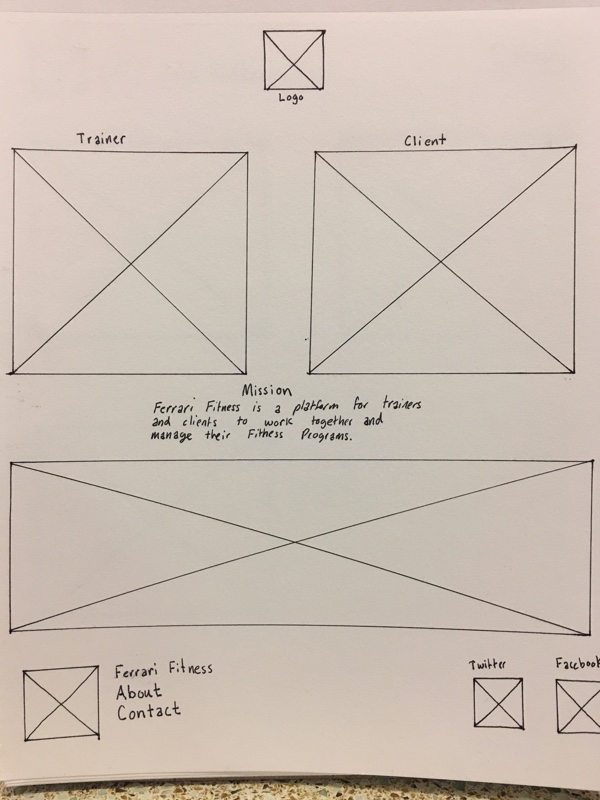 Logo
Trainer
Client
Mission
Ferrari Fitness is a platform for trainers
and clients to work together and
manage their Fitness Programs.
Ferrari Fitness
About
Contact
Twitter
Facebook